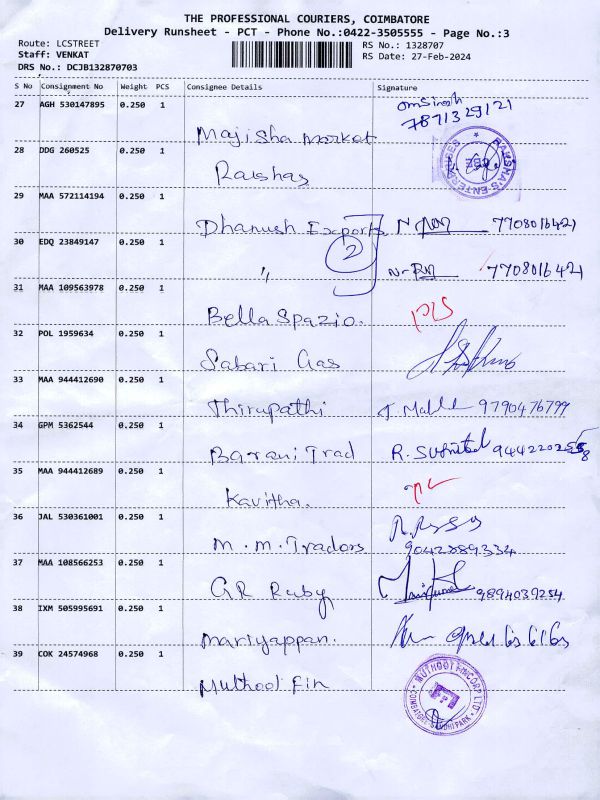 THE PROFESSIONAL COURIERS, COIMBATORE
Delivery Runsheet - PCT - Phone No.:0422-3505555 - Page No.:3
Route: LCSTREET
RS No.: 1328707
Staff: VENKAT
RS Date: 27-Feb-2024
DRS No.: DCJB132870703
S No Consignment No Weight PCS Consignee Details Signature
27 AGH 530147895 0.250 1 Majisha market omsingh
7871329121
28 DDG 260525 0.250 1 Rakshas RAKSHA'S ENTERPRISES
29 MAA 572114194 0.250 1 Dhanush Exports 7708016421
30 EDQ 23849147 0.250 1 〃 2 7708016421
31 MAA 109563978 0.250 1 Bella Spazio.
32 POL 1959634 0.250 1 Sabari Gas
33 MAA 944412690 0.250 1 Thirupathi 9790476799
34 GPM 5362544 0.250 1 Barani Trad
35 MAA 944412689 0.250 1 Kavitha.
36 JAL 530361001 0.250 1 M.M. Tradors 9042889334
37 MAA 108566253 0.250 1 GR Ruby 9894039254
38 IXM 505995691 0.250 1 Mariyappan.
39 COK 24574968 0.250 1 Muthoot Fin MUTHOOT FINCORP LTD.